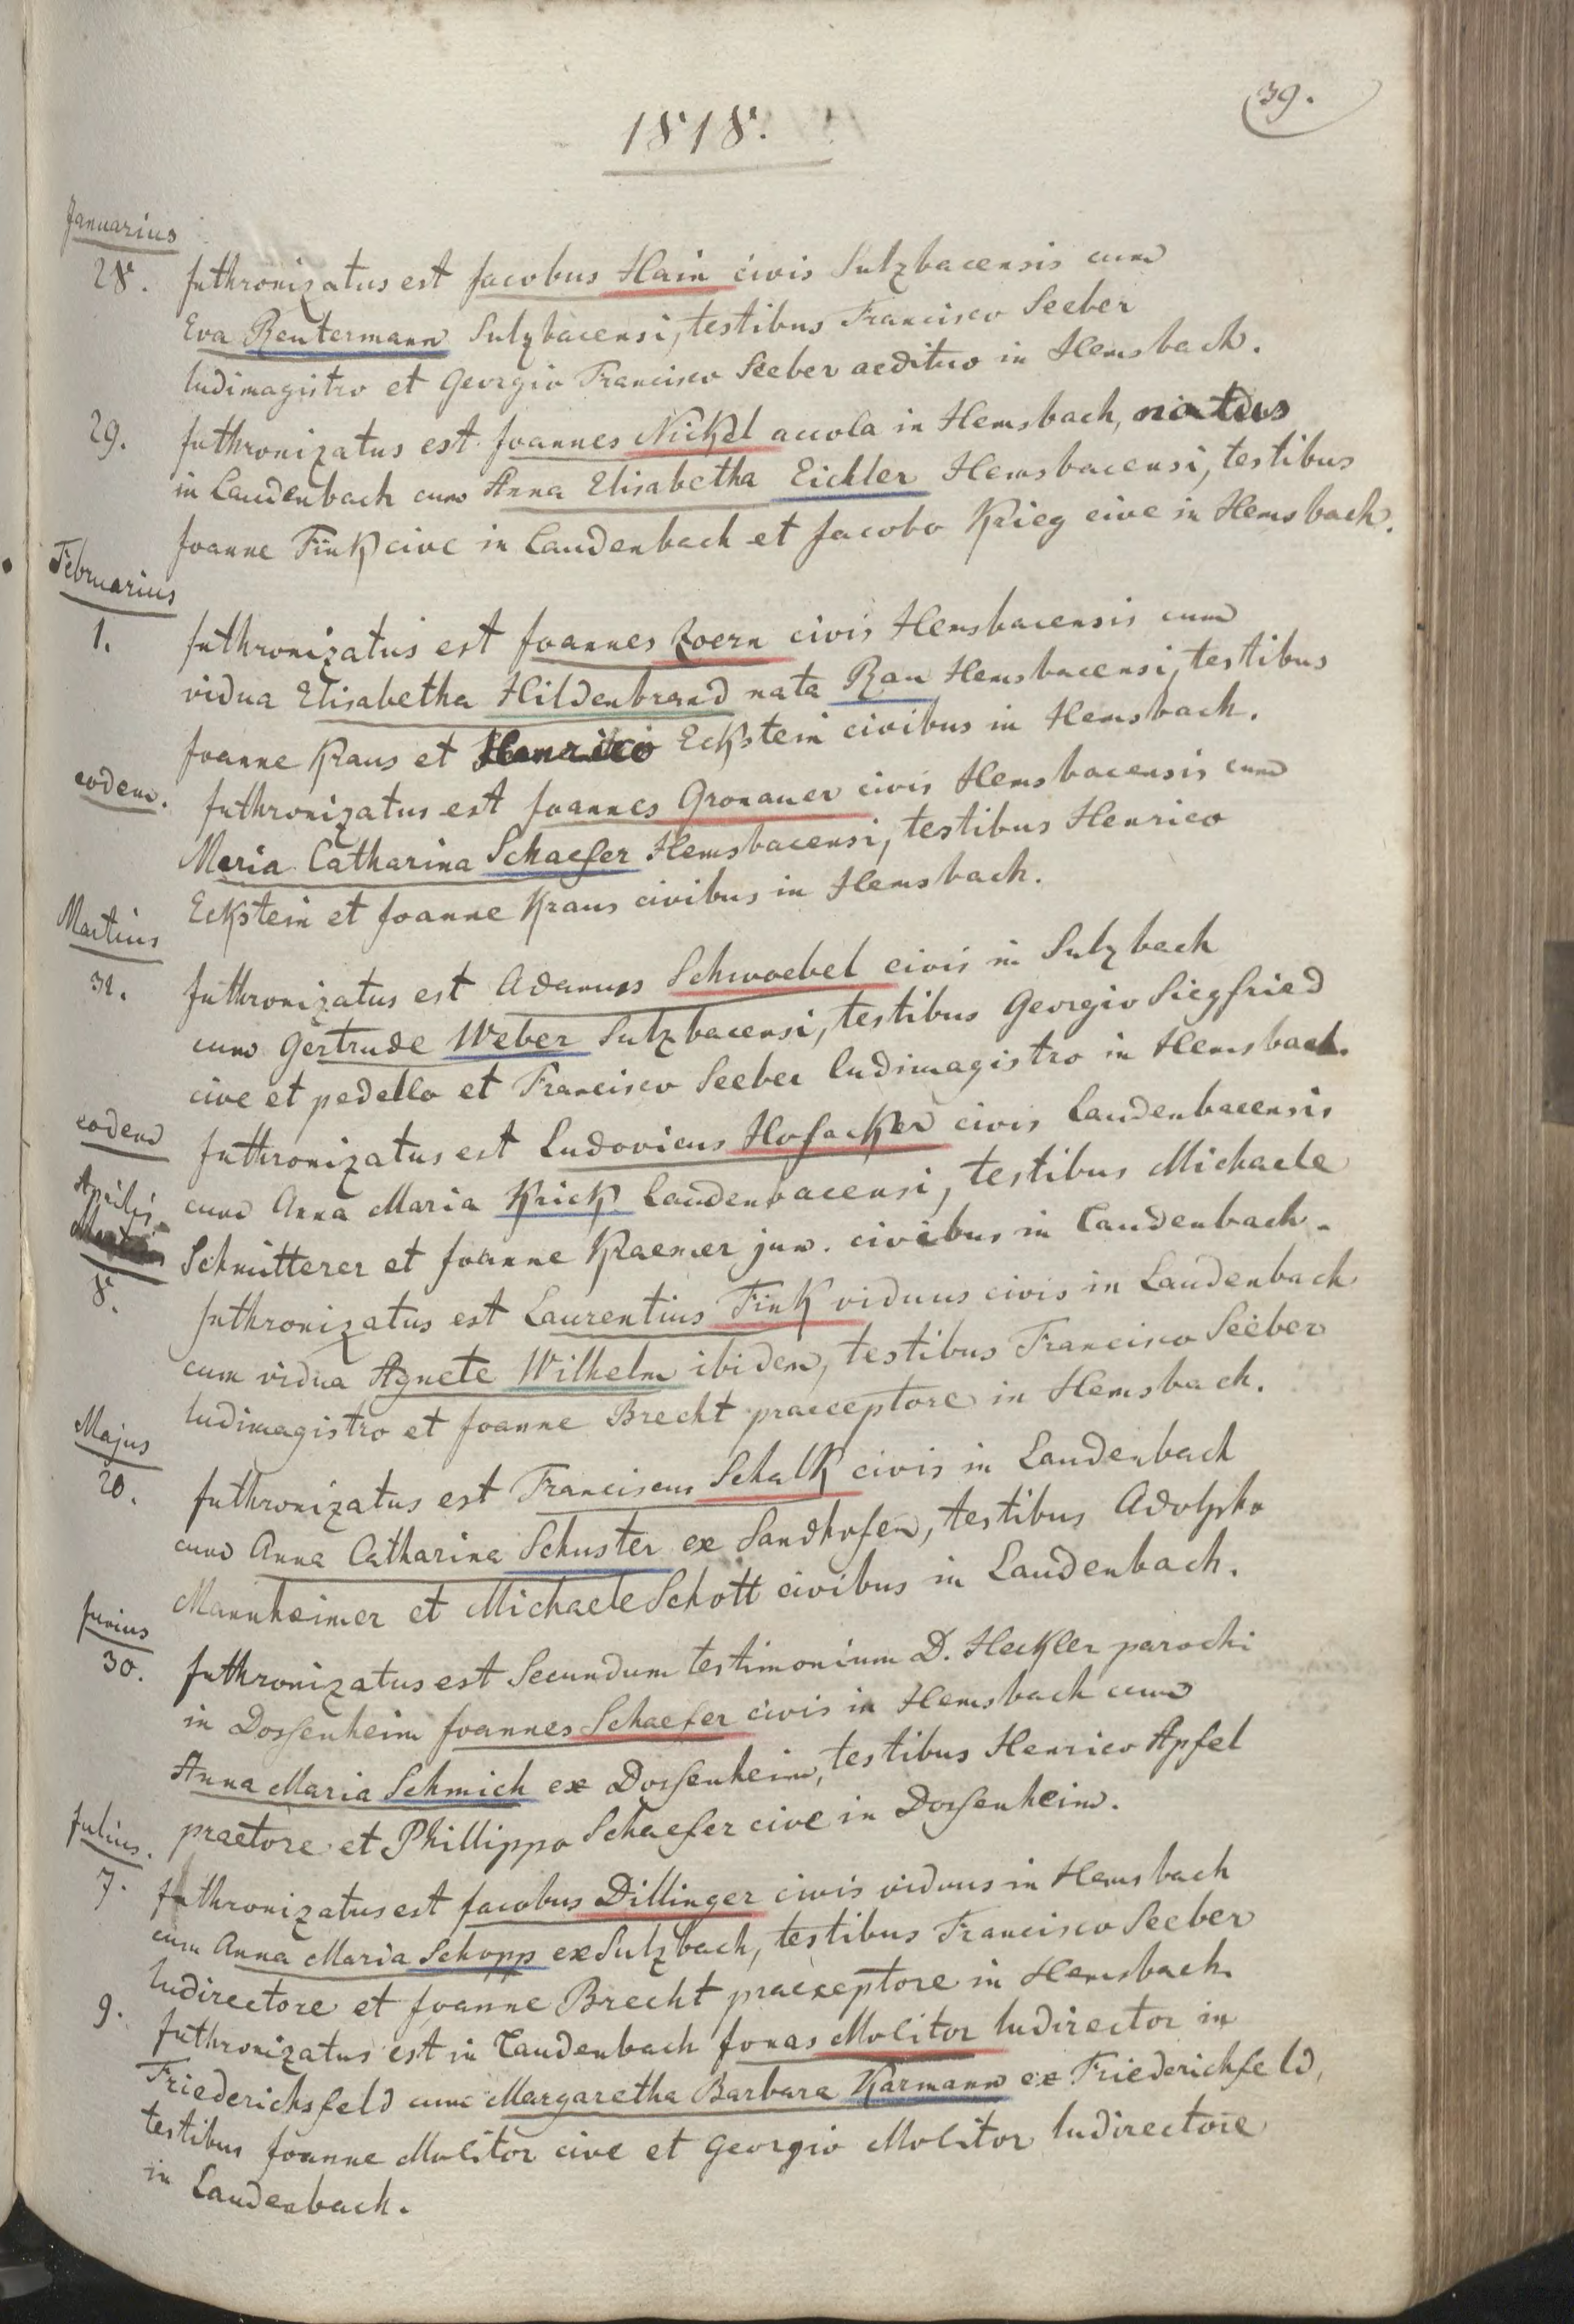 39.
1818.
Januarius
28. Inthronizatus est Jacobus Hain civis Sulzbacensis cum
Eva Reutermann Sulzbacensi, testibus Francisco Seeber
ludimagistro et Georgio Francisco Seeber aedituo in Hemsbach.
29. Inthronizatus est Joannes Nickel accola in Hemsbach, natus
in Laudenbach cum Anna Elisabetha Eichler Hemsbacensi, testibus
Joanne Fink cive in Laudenbach et Jacobo Krieg cive in Hemsbach.
Februarius
1. Inthronizatus est Joannes Zoern civis Hemsbacensis cum
vidua Elisabetha Hildenbrand nata Rau Hemsbacensi, testibus
Joanne Kraus et Henrico Eckstein civibus in Hemsbach.
eodem. Inthronizatus est Joannes Gronauer civis Hemsbacensis cum
Maria Catharina Schaefer Hemsbacensi, testibus Henrico
Eckstein et Joanne Kraus civibus in Hemsbach.
Martius
31. Inthronizatus est Adamus Schwoebel civis in Sulzbach
cum Gertrude Weber Sulzbacensi, testibus Georgio Siegfried
cive et pedello et Francisco Seeber ludimagistro in Hemsbach.
eodem Inthronizatus est Ludovicus Hofacker civis Laudenbacensis
cum Anna Maria Krick Laudenbacensi, testibus Michaele
Schmitterer et Joanne Kraemer jun. civibus in Laudenbach.
Aprilis
8. Inthronizatus est Laurentius Fink viduus civis in Laudenbach
cum vidua Agnete Wilhelm ibidem, testibus Francisco Seeber
ludimagistro et Joanne Brecht praeceptore in Hemsbach.
Majus
20. Inthronizatus est Franciscus Schalk civis in Laudenbach
cum Anna Catharina Schuster ex Sandhofen, testibus Adolpho
Mannheimer et Michaele Schott civibus in Laudenbach.
Junius
30. Inthronizatus est Secundum testimonium D. Heckler parochi
in Dossenheim Joannes Schaefer civis in Hemsbach cum
Anna Maria Schmich ex Dossenheim, testibus Henrico Apfel
praetore et Phillippo Schaefer cive in Dossenheim.
Julius.
7. Inthronizatus est Jacobus Dillinger civis viduus in Hemsbach
cum Anna Maria Schopp ex Sulzbach, testibus Francisco Seeber
ludirectore et Joanne Brecht praeceptore in Hemsbach.
9. Inthronizatus est in Laudenbach Jonas Molitor ludirector in
Friederichsfeld cum Margaretha Barbara Karmann ex Friederichfeld,
testibus Joanne Molitor cive et Georgio Molitor ludirectore
in Laudenbach.